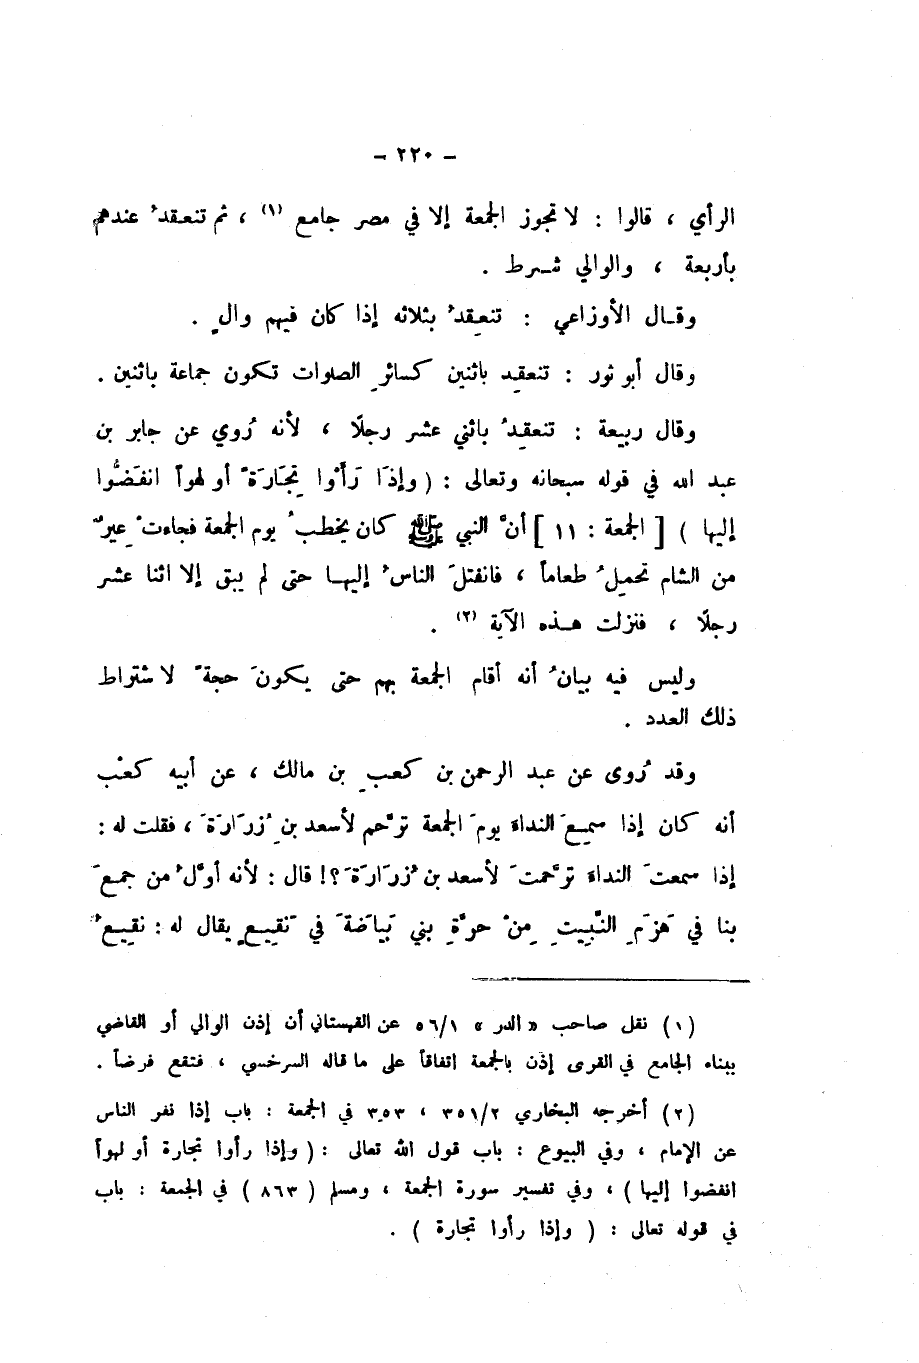 – ٢٢٠ –
الرأي ، قالوا : لا تجوز الجمعة إلا في مصر جامع (١) ، ثم تنعقدُ عندهم
بأربعة ، والوالي شـرط .
وقـال الأوزاعي : تنعقدُ بثلاثه إذا كان فيهم والٍ .
وقال أبو ثور : تنعقِد باثنين كسائرِ الصلوات تكون جماعة باثنين .
وقال ربيعة : تنعقِدُ باثني عشر رجلًا ، لأنه رُوي عن جابر بن
عبد الله في قوله سبحانه وتعالى : ( وإذَا رَأَوْا تِجَارَةً أو لهواً انفَضُّوا
إليها ) [ الجمعة : ١١ ] أنَّ النبي ﷺ كان يخطبُ يوم الجمعة فجاءتْ عِيرٌ
من الشام تحمِلُ طعاماً ، فانفتلَ الناسُ إليهـا حتى لم يبق إلا اثنا عشر
رجلًا ، فنزلت هـذه الآية (٢) .
وليس فيه بيانُ أنه أقام الجمعة بهم حتى يكونَ حجةً لاشتراط
ذلك العدد .
وقد رُوى عن عبد الرحمن بن كعبِ بن مالك ، عن أبيه كعْب
أنه كان إذا سمِعَ النداءَ يومَ الجمعة ترحَّم لأسعد بنِ زُرَارَةَ ، فقلت له :
إذا سمعتَ النداءَ ترحَّمتَ لأسعد بن زُرَارَةَ ؟! قال : لأنه أوَّلُ من جمعَ
بنا في هَزَمِ النَّبِيتِ مِنْ حرَّةِ بني بَيَاضَةَ في نَقيعٍ يقال له : نقيعُ
(١) نقل صاحب « الدر » ٥٦/١ عن القهستاني أن إذن الوالي أو القاضي
ببناء الجامع في القرى إذن بالجمعة اتفاقاً على ما قاله السرخسي ، فتقع فرضاً .
(٢) أخرجه البخاري ٣٥١/٢ ، ٣٥٣ في الجمعة : باب إذا نفر الناس
عن الإمام ، وفي البيوع : باب قول الله تعالى : ( وإذا رأوا تجارة أو لهواً
انفضوا إليها ) ، وفي تفسير سورة الجمعة ، ومسلم ( ٨٦٣ ) في الجمعة : باب
في قوله تعالى : ( وإذا رأوا تجارة ) .